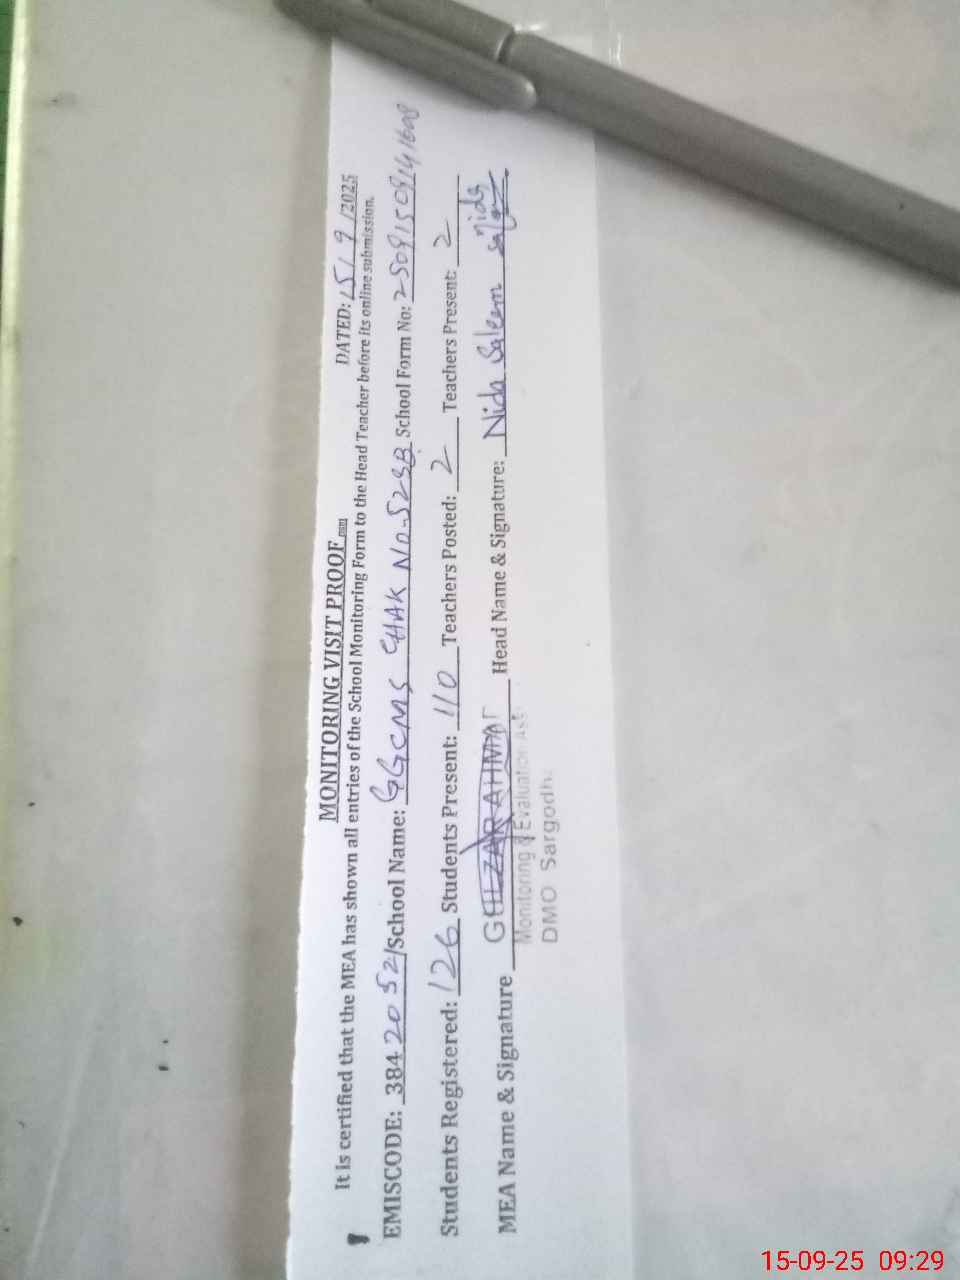 MONITORING VISIT PROOF
DATED: 15/9/2025
It is certified that the MEA has shown all entries of the School Monitoring Form to the Head Teacher before its online submission.
EMISCODE: 38420521 School Name: GGCMS CHAK No. 52SB School Form No:
Students Registered: 126 Students Present: 110 Teachers Posted: 2 Teachers Present: 2
MEA Name & Signature GULZAR AHMAD Head Name & Signature: Nida Saleem Nida
Monitoring & Evaluation Ast
DMO Sargodha
15-09-25 09:29